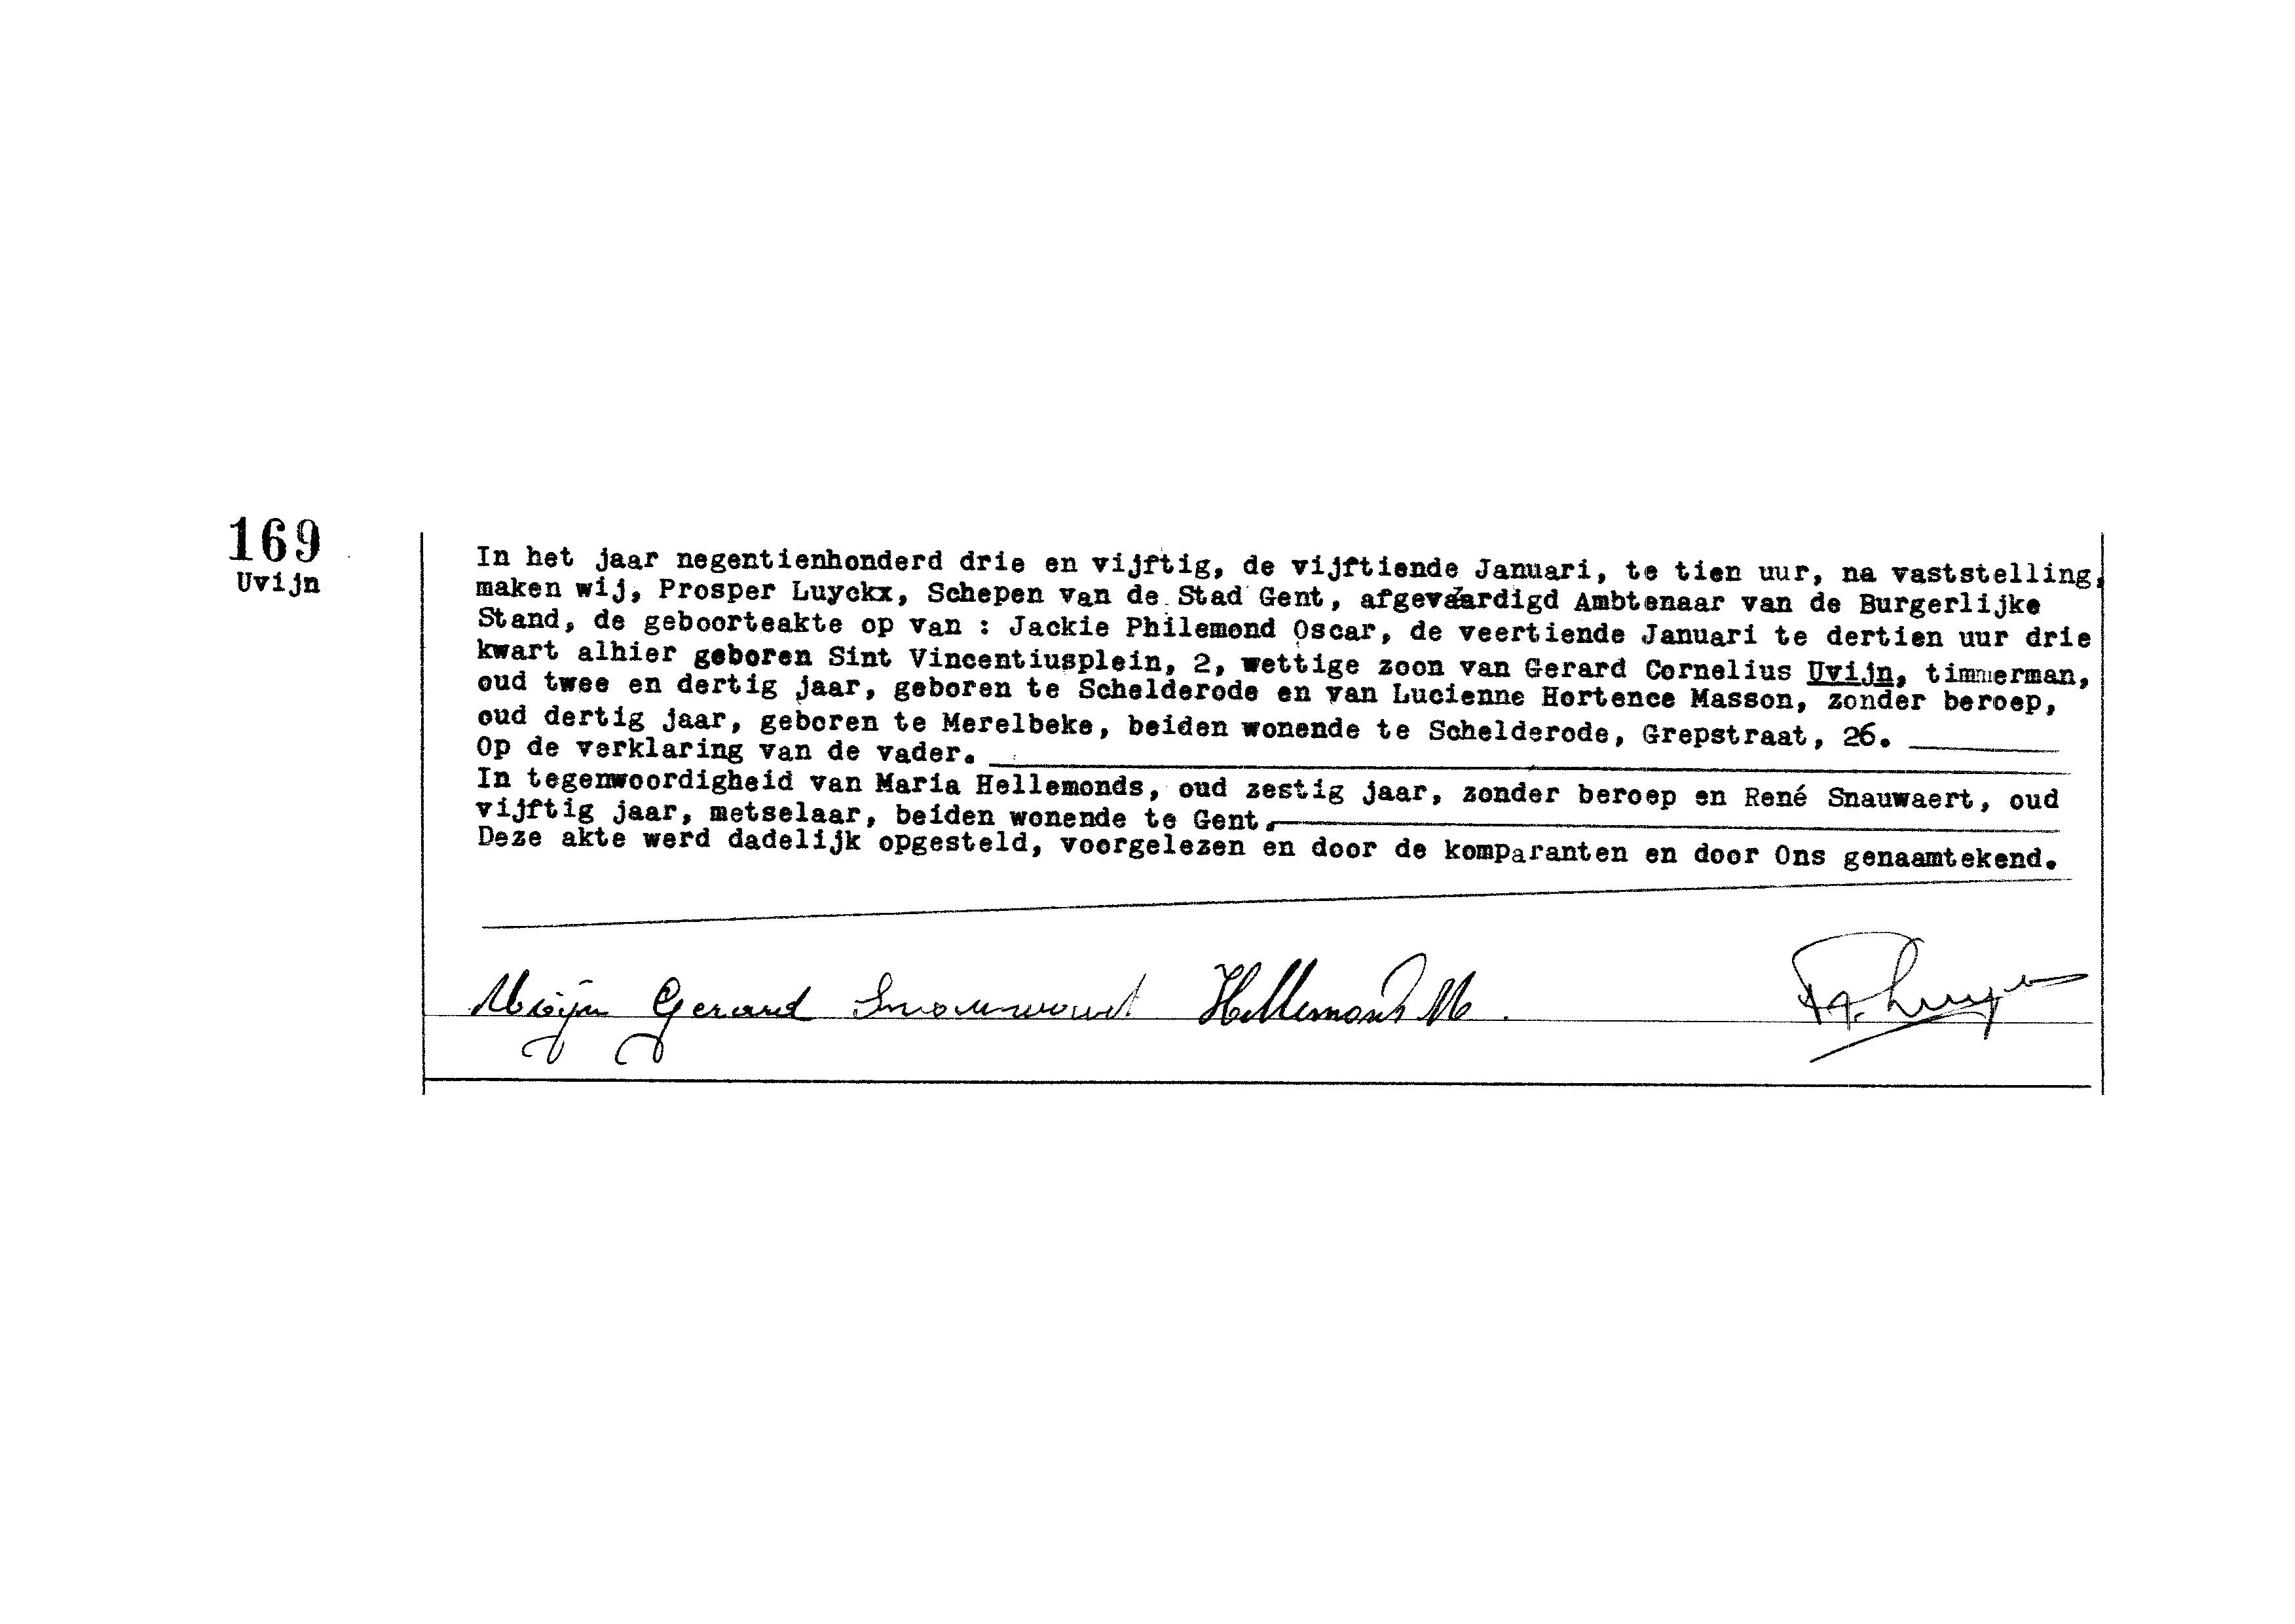 169
Uvijn
In het jaar negentienhonderd drie en vijftig, de vijftiende Januari, te tien uur, na vaststelling,
maken wij, Prosper Luyckx, Schepen van de Stad Gent, afgevaardigd Ambtenaar van de Burgerlijke
Stand, de geboorteakte op van : Jackie Philemond Oscar, de veertiende Januari te dertien uur drie
kwart alhier geboren Sint Vincentiusplein, 2, wettige zoon van Gerard Cornelius Uvijn, timmerman,
oud twee en dertig jaar, geboren te Schelderode en van Lucienne Hortence Masson, zonder beroep,
oud dertig jaar, geboren te Merelbeke, beiden wonende te Schelderode, Grepstraat, 26.
Op de verklaring van de vader.
In tegenwoordigheid van Maria Hellemonds, oud zestig jaar, zonder beroep en René Snauwaert, oud
vijftig jaar, metselaar, beiden wonende te Gent.
Deze akte werd dadelijk opgesteld, voorgelezen en door de komparanten en door Ons genaamtekend.
Uvijn Gerard Snauwaert Hellemonds M.